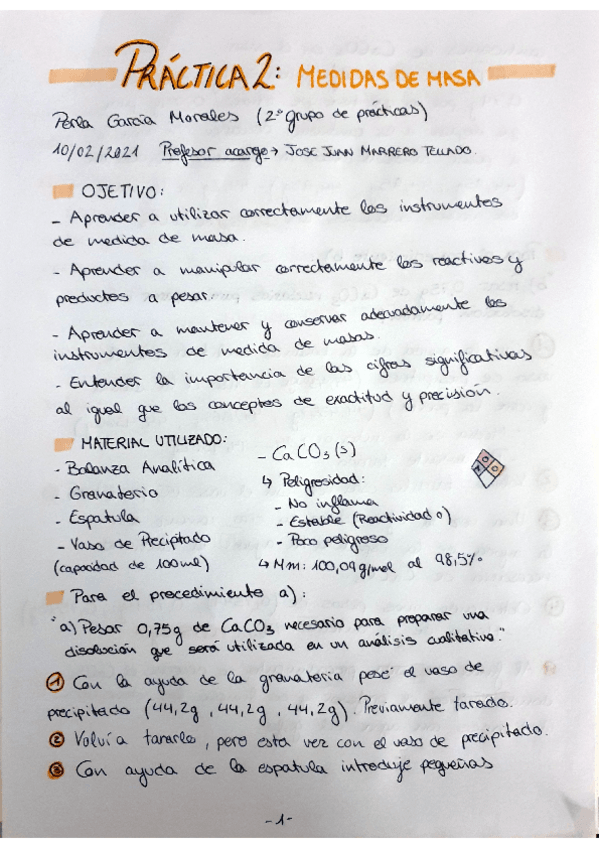 PRÁCTICA 2: MEDIDAS DE MASA
Perla García Morales (2º grupo de prácticas)
10/02/2021 Profesor acargo → JOSE JUAN MARRERO TELLADO.
OJETIVO:
- Aprender a utilizar correctamente los instrumentos
de medida de masa.
- Aprender a manipular correctamente los reactivos y
productos a pesar.
- Aprender a mantener y conservar adecuadamente los
instrumentos de medida de masas.
- Entender la importancia de las cifras significativas
al igual que los conceptos de exactitud y precisión.
MATERIAL UTILIZADO:
- Balanza Analítica
- Granatario
- Espatula
- Vaso de Precipitado
(capacidad de 100ml)
- CaCO3 (s)
↳ Peligrosidad:
- No inflama
- Estable (Reactividad 0)
- Poco peligroso
↳ Mm: 100,09g/mol al 98,5%
1 0 0
Para el procedimiento a):
"a) Pesar 0,75g de CaCO3 necesario para preparar una
disolución que será utilizada en un análisis cualitativo."
① Con la ayuda de la granataria pesé el vaso de
precipitado (44,2g, 44,2g, 44,2g). Previamente tarado.
② Volví a tararla, pero esta vez con el vaso de precipitado.
③ Con ayuda de la espatula introduje pequeñas
-1-